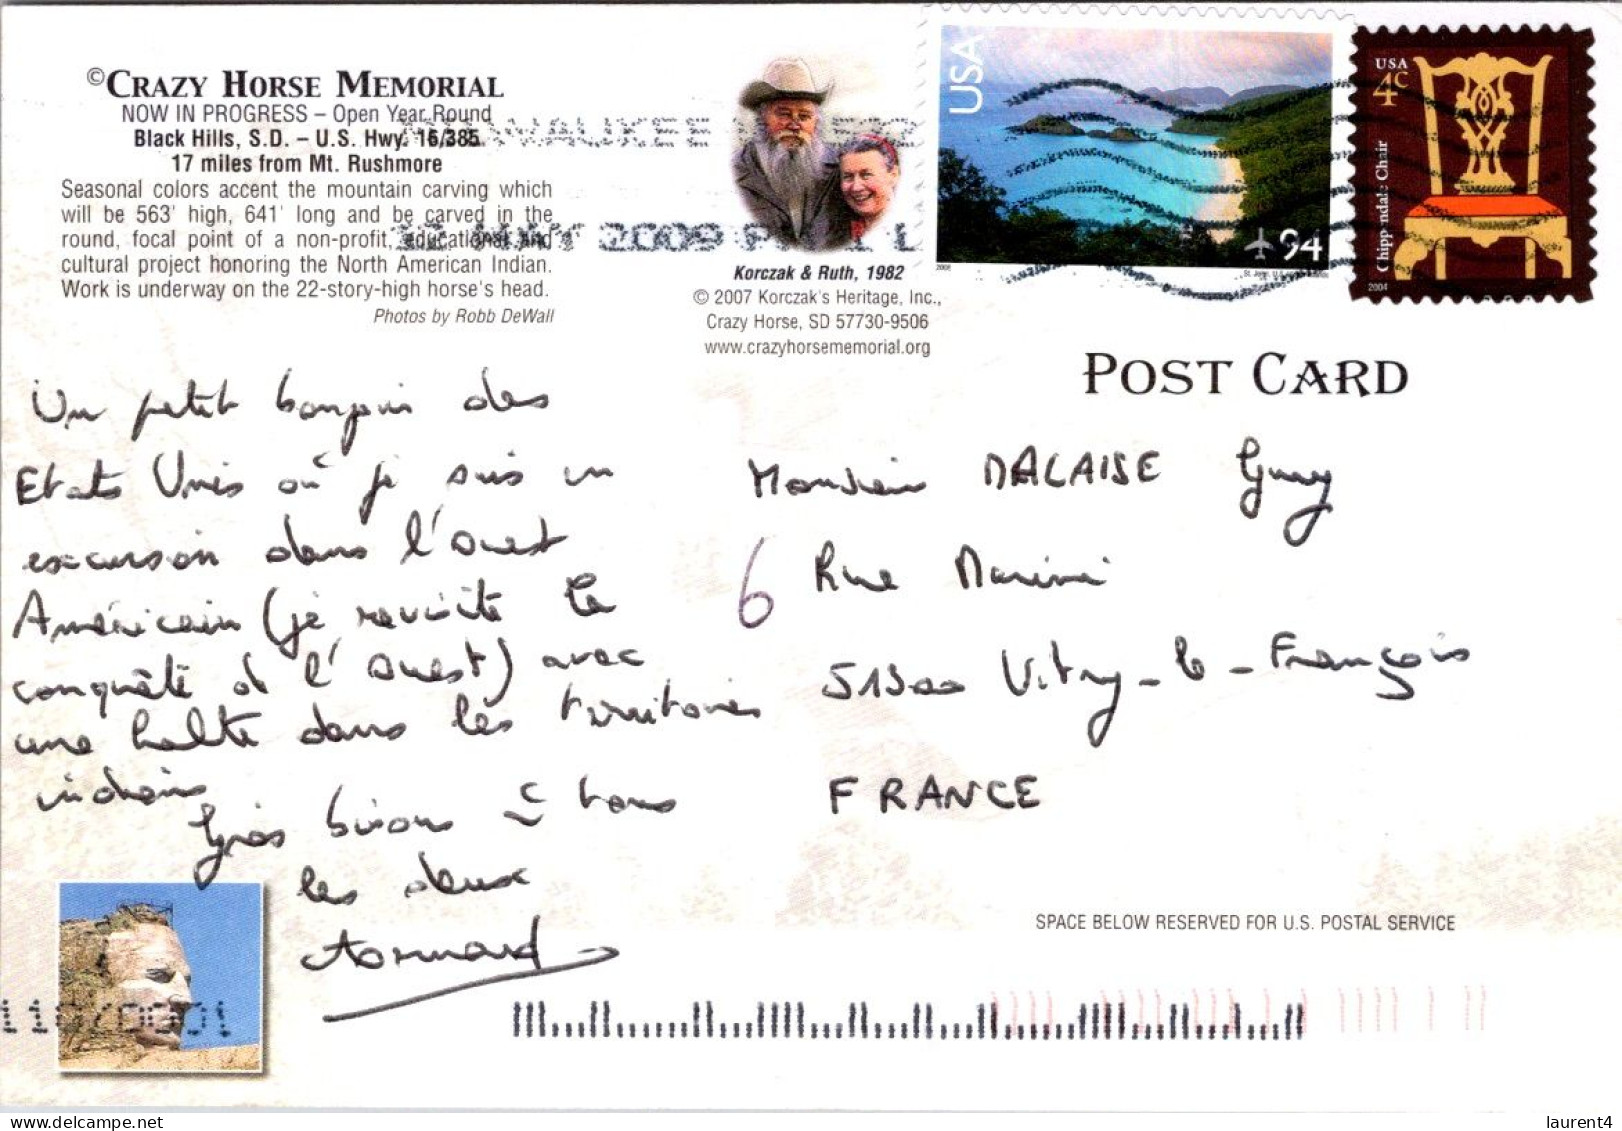 ©CRAZY HORSE MEMORIAL
NOW IN PROGRESS – Open Year Round
Black Hills, S.D. – U.S. Hwy. 16/385
17 miles from Mt. Rushmore
Seasonal colors accent the mountain carving which
will be 563' high, 641' long and be carved in the
round, focal point of a non-profit, educational and
cultural project honoring the North American Indian.
Work is underway on the 22-story-high horse's head.
Photos by Robb DeWall
Korczak & Ruth, 1982
© 2007 Korczak's Heritage, Inc.,
Crazy Horse, SD 57730-9506
www.crazyhorsememorial.org
MILWAUKEE
2009 PM 1 L
USA
94
2008
USA
4c
Chippendale Chair
2004
POST CARD
Un petit bonjour des
Etats Unis où je suis en
excursion dans l'ouest
Américain (je revisite la
conquête de l'ouest) avec
une halte dans les territoires
indiens
Gros bisous à tous
les deux
Arnaud
Monsieur MALAISE Guy
6 Rue Marini
51300 Vitry-le-François
FRANCE
SPACE BELOW RESERVED FOR U.S. POSTAL SERVICE
laurent4